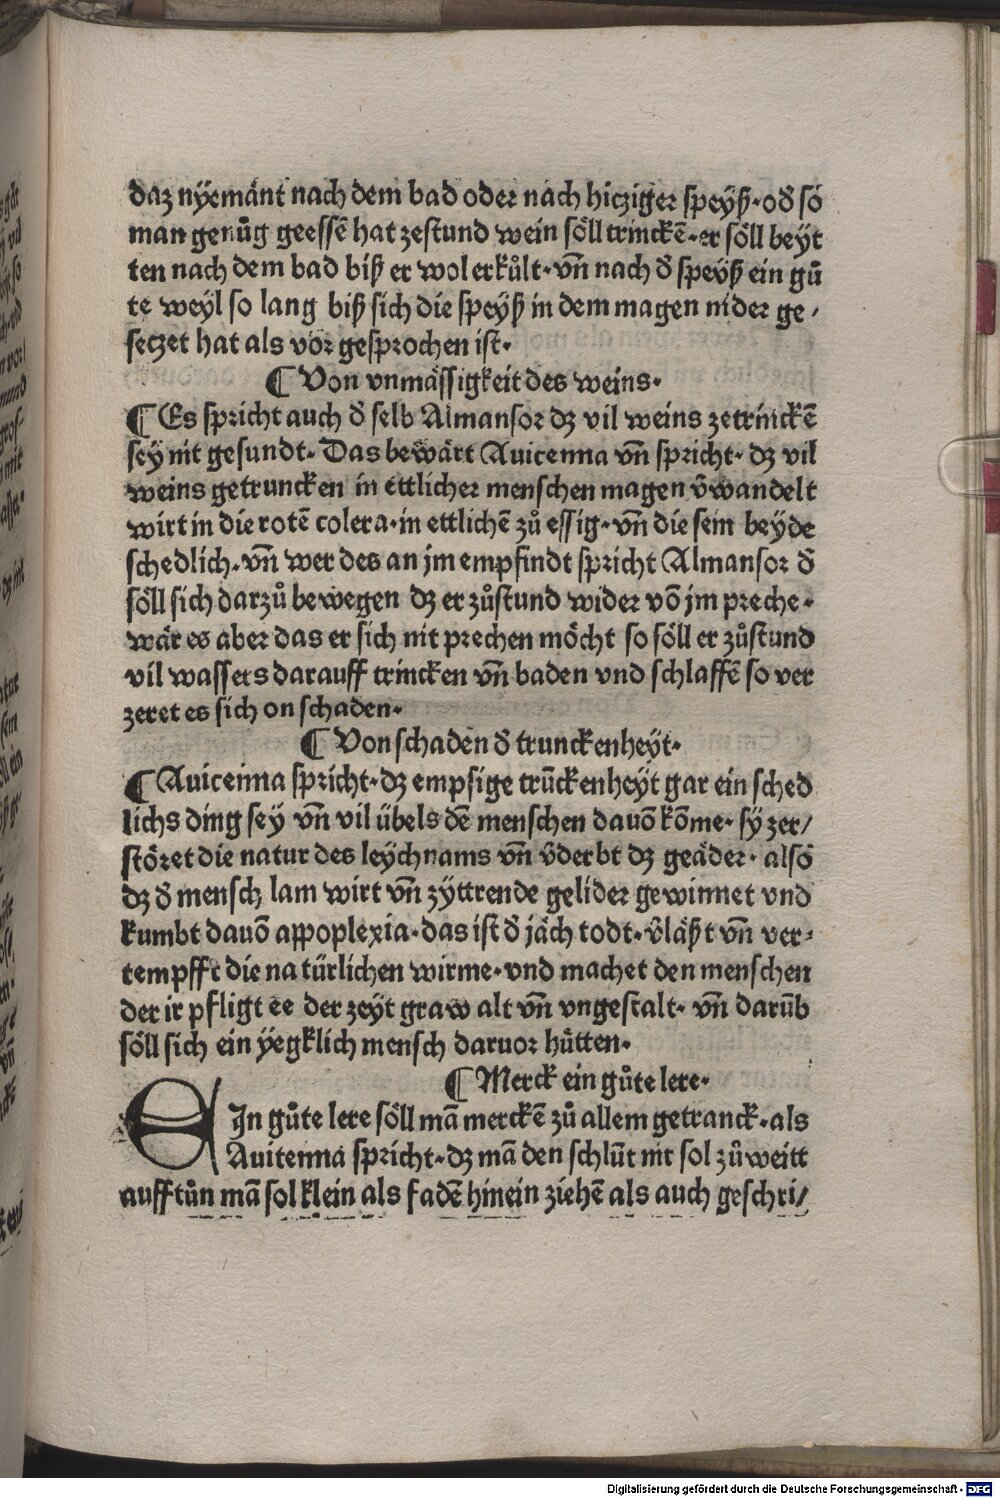 daz nyemant nach dem bad oder nach hicziger speyß·oď so
man genůg geessē hat zestund wein söll trinckē·er söll beyt
ten nach dem bad biß er wol erkůlt·vñ nach ď speyß ein gů
te weyl so lang biß sich die speyß in dem magen nider ge/
seczet hat als vor gesprochen ist·
¶ Von vnmässigkeit des weins·
¶ Es spricht auch ď selb Almansor dz vil weins zetrinckē
sey nit gesundt· Das bewärt Auicenna vñ spricht· dz vil
weins getruncken in ettlicher menschen magen v̄wandelt
wirt in die rotē colera·in ettlichē zů essig·vñ die sein beyde
schedlich·vñ wer des an jm empfindt spricht Almansor ď
söll sich darzů bewegen dz er zůstund wider vō jm preche·
wär es aber das er sich nit prechen möcht so söll er zůstund
vil wassers darauff trincken vñ baden vnd schlaffē so ver
zeret es sich on schaden·
¶ Von schaden ď trunckenheyt·
¶ Auicenna spricht·dz empsige trūckenheyt gar ein sched
lichs ding sey vñ vil übels dē menschen dauō kōme· sy zer/
störet die natur des leychnams vñ v̄derbt dz geäder· also
dz ď mensch lam wirt vñ zyttrende gelider gewinnet vnd
kumbt dauō appoplexia·das ist ď jäch todt·v̄läßt vñ ver-
tempfft die natürlichen wirme·vnd machet den menschen
der ir pfligt ee der zeyt graw alt vñ vngestalt· vñ darūb
söll sich ein yegklich mensch daruor hütten·
¶ Merck ein gůte lere·
EIn gůte lere söll mā merckē zů allem getranck·als
Auitenna spricht·dz mā den schlūt nit sol zů weitt
auff tůn mā sol klein als fadē hinein ziehē als auch geschri/
Digitalisierung gefördert durch die Deutsche Forschungsgemeinschaft - DFG